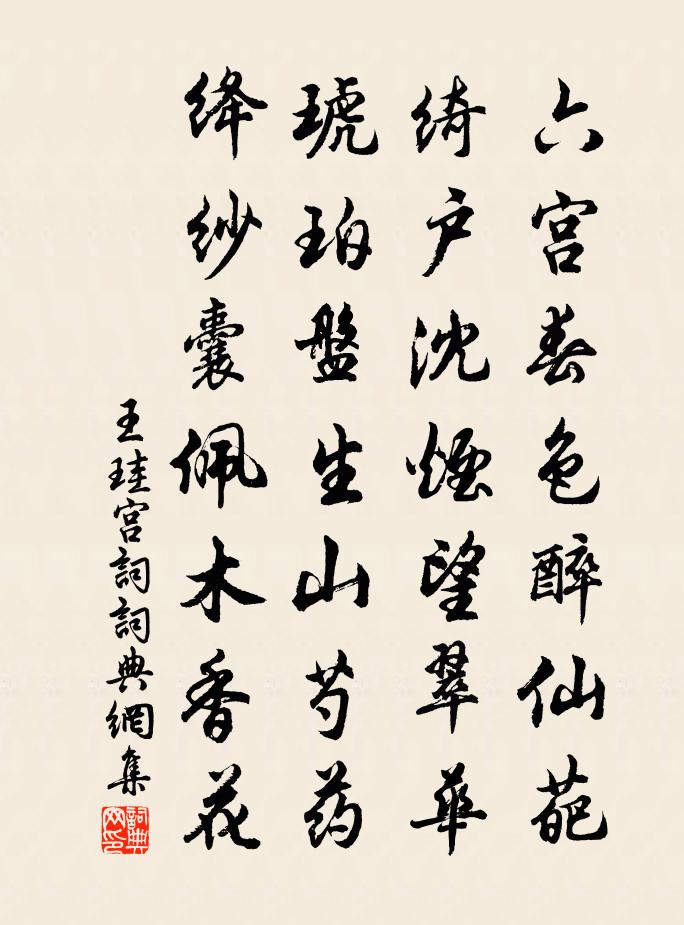 六宫春色醉仙葩
绮户沈烟望翠华
琥珀盤生山芍药
绛纱囊佩木香花
王珪宫詞詞典網集
詞典网印